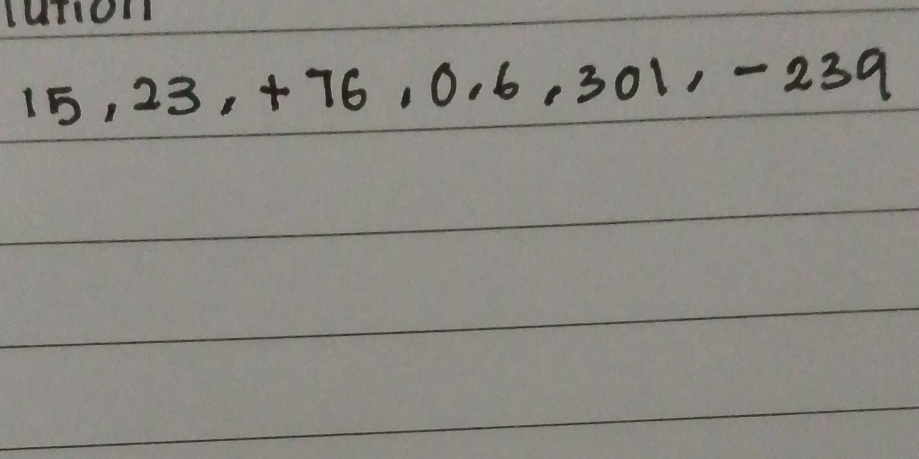 lution
15, 23, +76, 0.6, 301, -239